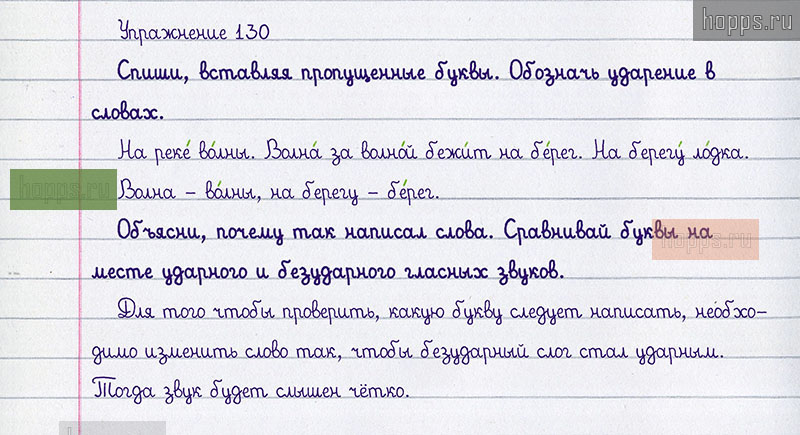 hopps.ru
Упражнение 130
Спиши, вставляя пропущенные буквы. Обозначь ударение в
словах.
На реке́ во́лны. Волна́ за волно́й бежи́т на бе́рег. На берегу́ ло́дка.
hopps.ru
Волна – во́лны, на берегу – бе́рег.
Объясни, почему так написал слова. Сравнивай буквы на
hopps.ru
месте ударного и безударного гласных звуков.
Для того чтобы проверить, какую букву следует написать, необхо-
димо изменить слово так, чтобы безударный слог стал ударным.
Тогда звук будет слышен чётко.